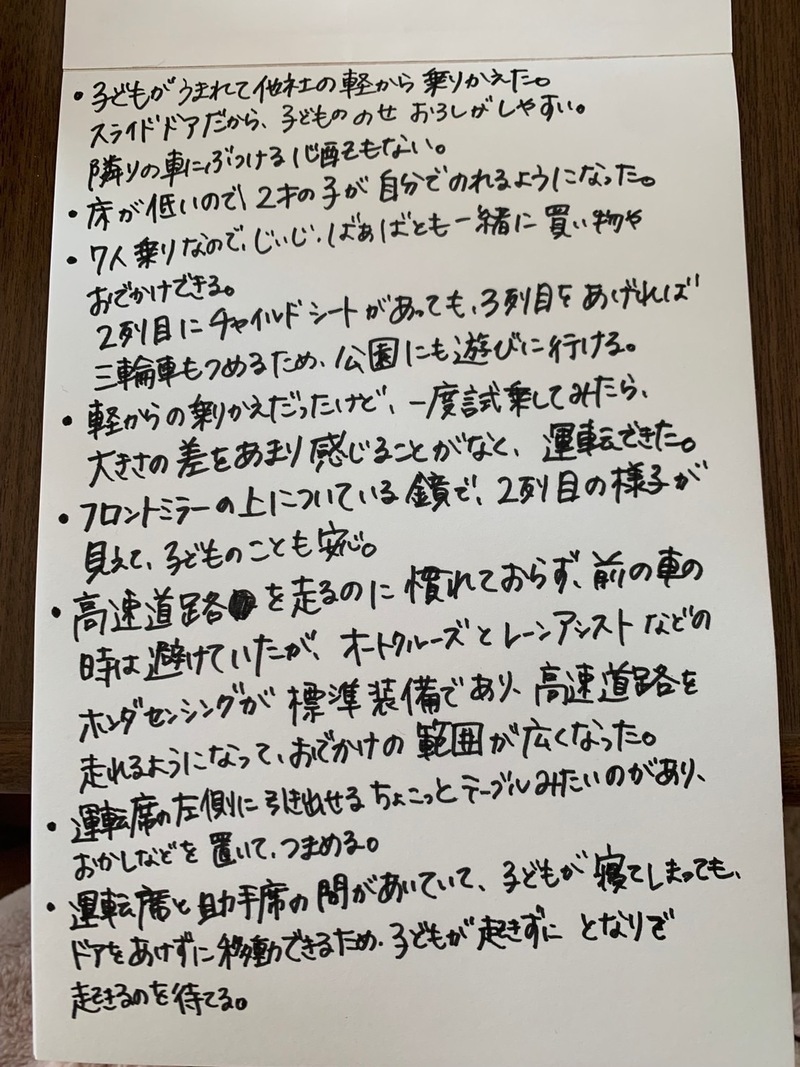 ・子どもがうまれて他社の軽から乗りかえた。
スライドドアだから、子どもののせおろしがしやすい。
隣りの車にぶつける心配もない。
・床が低いので、2才の子が自分でのれるようになった。
・7人乗りなので、じぃじ・ばぁばとも一緒に買い物や
おでかけできる。
2列目にチャイルドシートがあっても、3列目をあげれば
三輪車もつめるため、公園にも遊びに行ける。
・軽からの乗りかえだったけど、一度試乗してみたら、
大きさの差をあまり感じることがなく、運転できた。
・フロントミラーの上についている鏡で、2列目の様子が
見えて、子どものことも安心。
・高速道路を走るのに慣れておらず、前の車の
時は避けていたが、オートクルーズとレーンアシストなどの
ホンダセンシングが標準装備であり、高速道路を
走れるようになって、おでかけの範囲が広くなった。
・運転席の左側に引き出せるちょこっとテーブルみたいのがあり、
おかしなどを置いて、つまめる。
・運転席と助手席の間があいていて、子どもが寝てしまっても、
ドアをあけずに移動できるため、子どもが起きずにとなりで
起きるのを待てる。